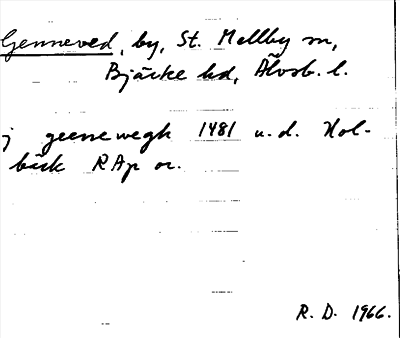 Genneved, by, St. Mellby sn,
Bjärke hd, Älvsb. l.
j geenewegh 1481 u. d. Hol-
bäck RAp or.
R. D. 1966.